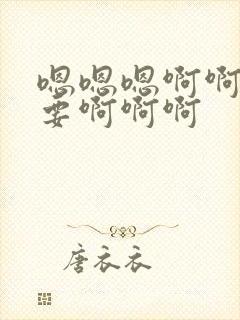 嗯嗯嗯啊啊
要啊啊啊
唐衣衣